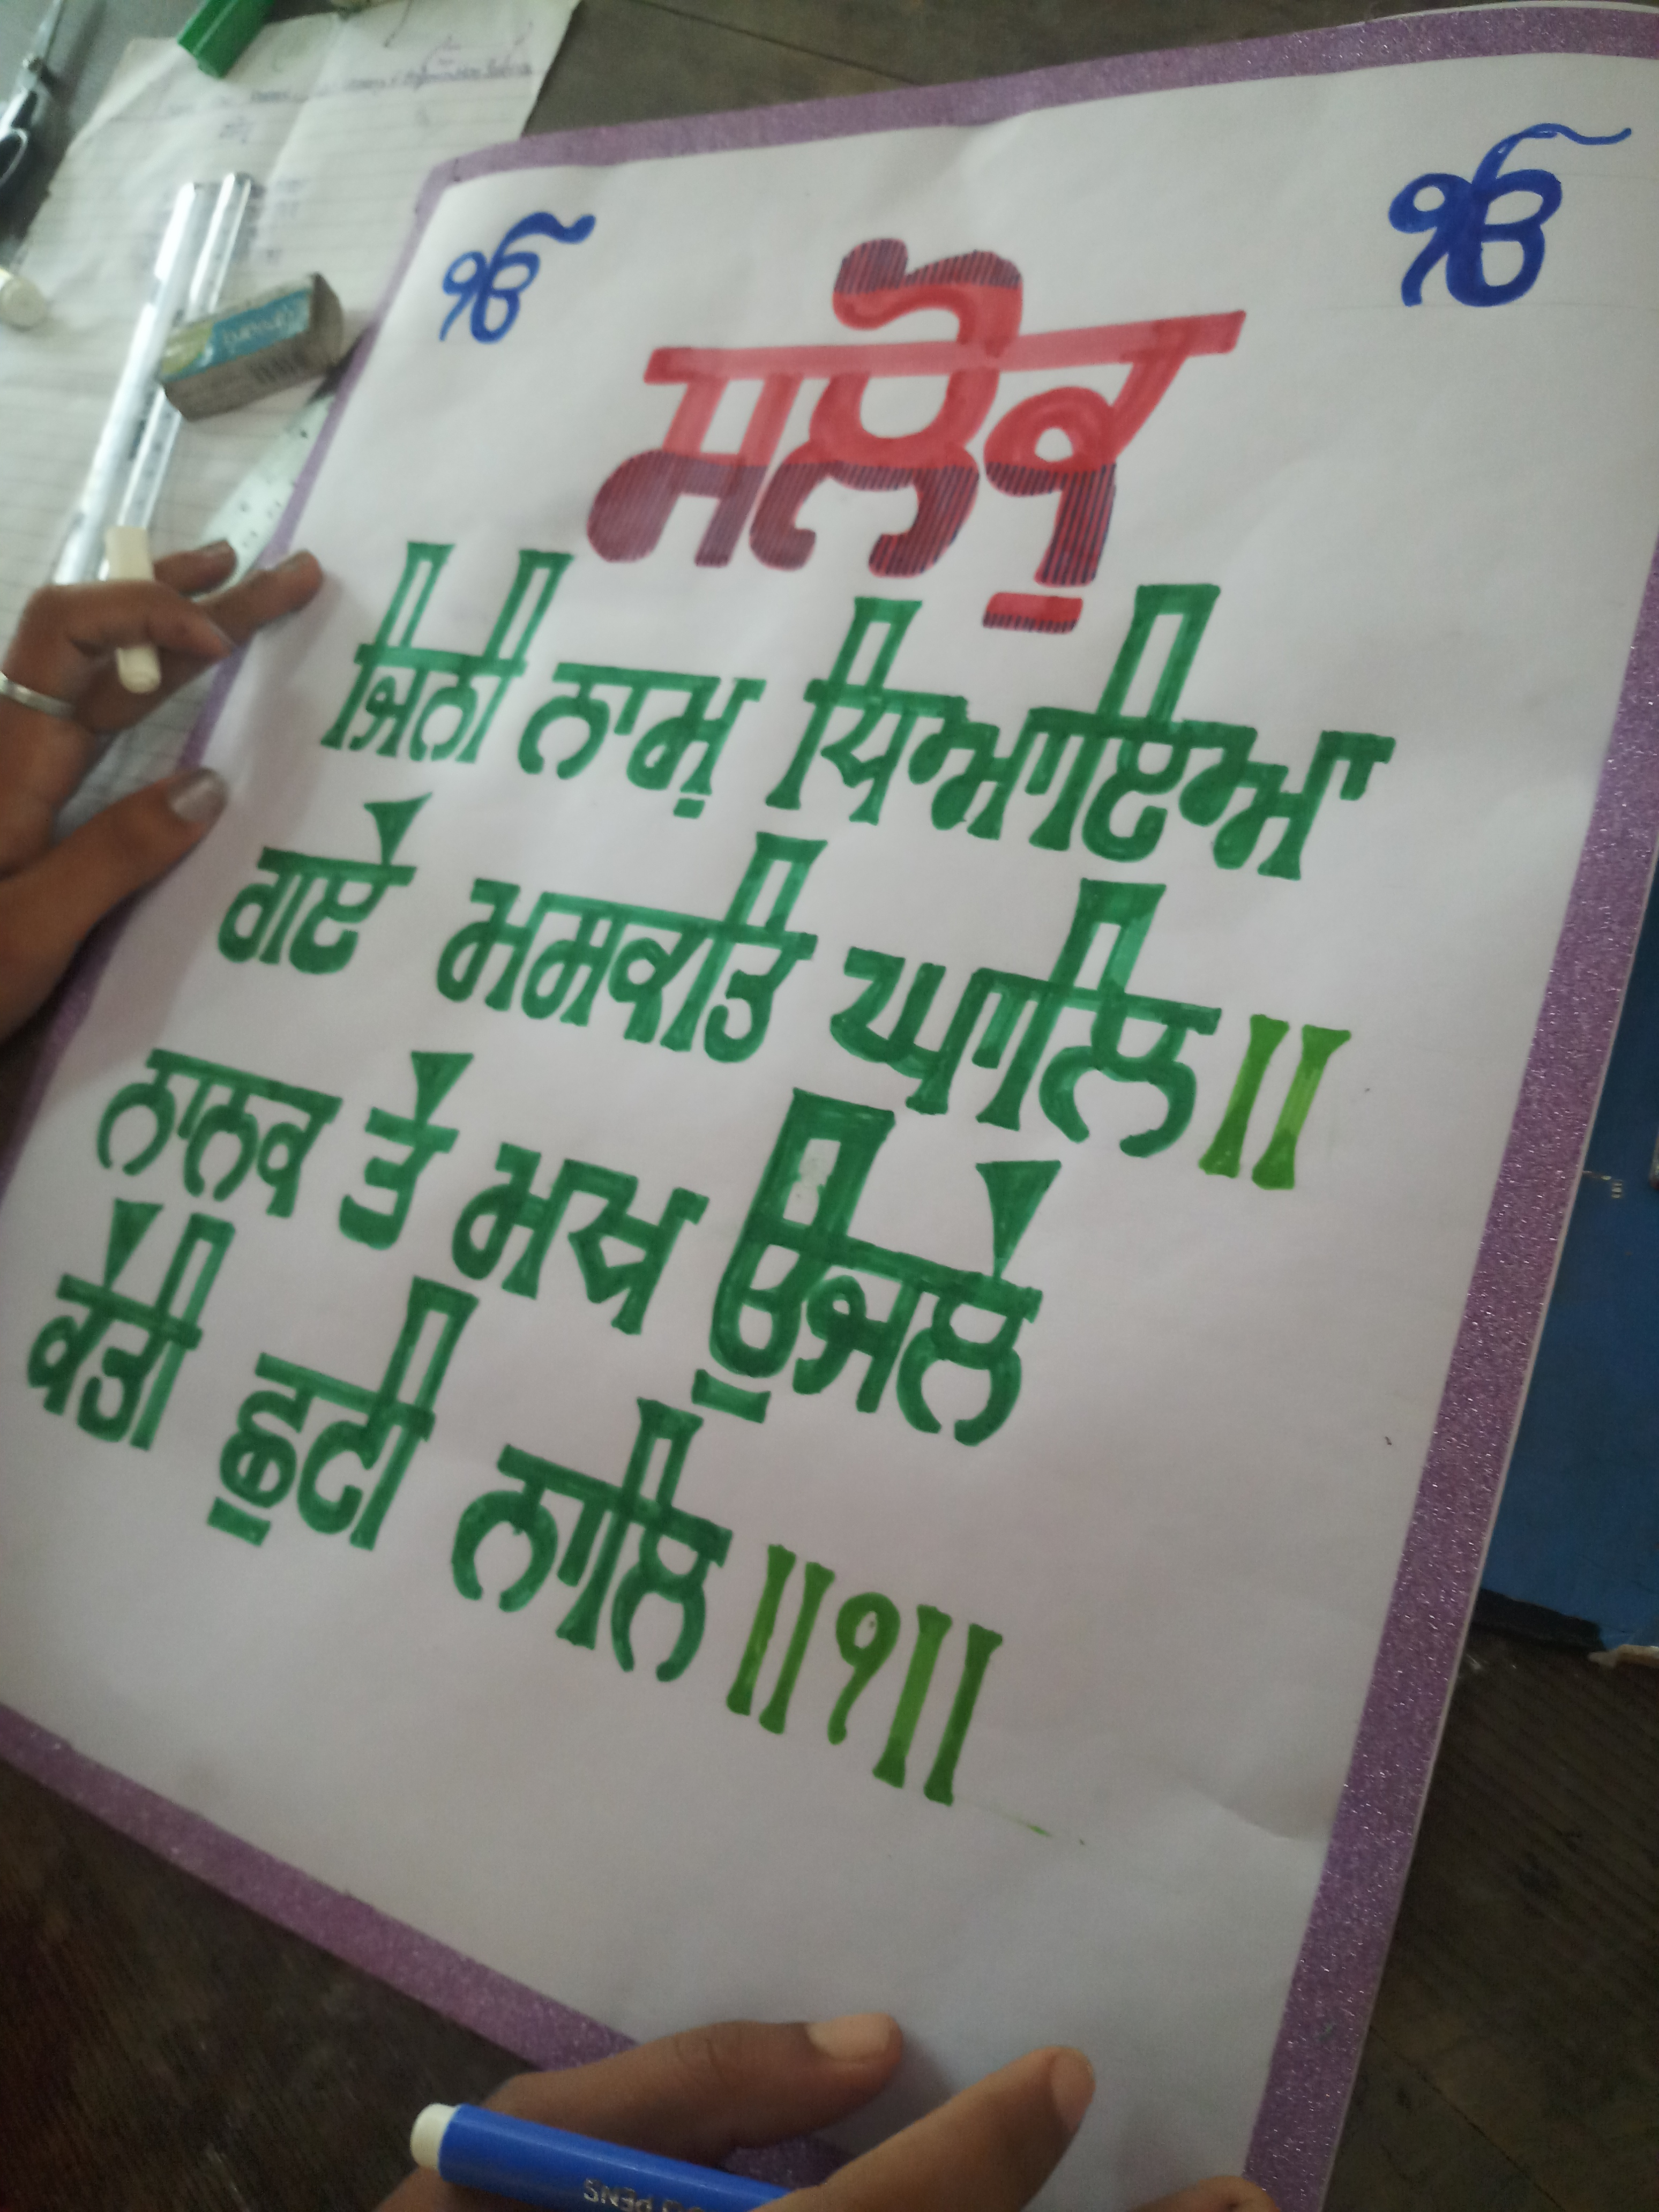 ੴ ੴ
ਸਲੋਕੁ
ਜਿਨੀ ਨਾਮੁ ਧਿਆਇਆ
ਗਏ ਮਸਕਤਿ ਘਾਲਿ॥
ਨਾਨਕ ਤੇ ਮਖ ਉਜਲੇ
ਕੇਤੀ ਛੁਟੀ ਨਾਲਿ॥੧॥
PENS